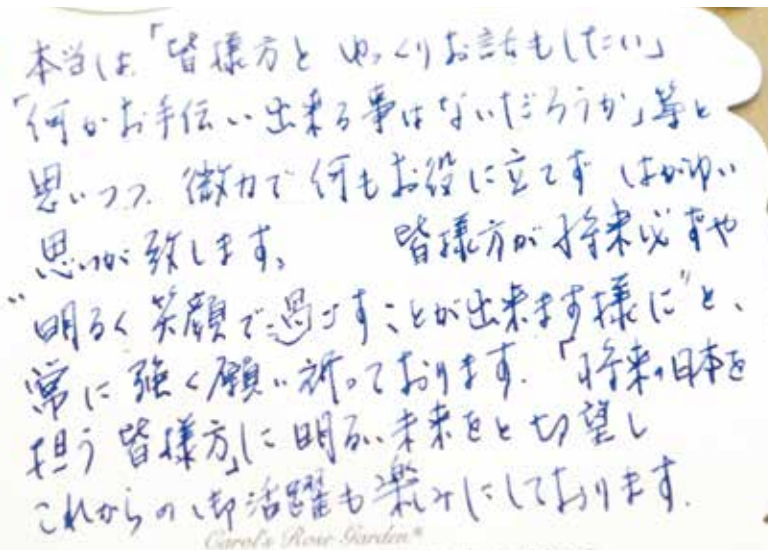 本当は「皆様方と ゆっくりお話もしたい」
「何かお手伝い出来る事はないだろうか」等と
思いつつ、微力で何もお役に立てず はがゆい
思いが致します。 皆様方が将来必ずや
"明るく笑顔で過ごすことが出来ます様に"と、
常に強く願い祈っております。「将来の日本を
担う皆様方」に明るい未来をと切望し
これからの御活躍も楽しみにしております。
Carol's Rose Garden®